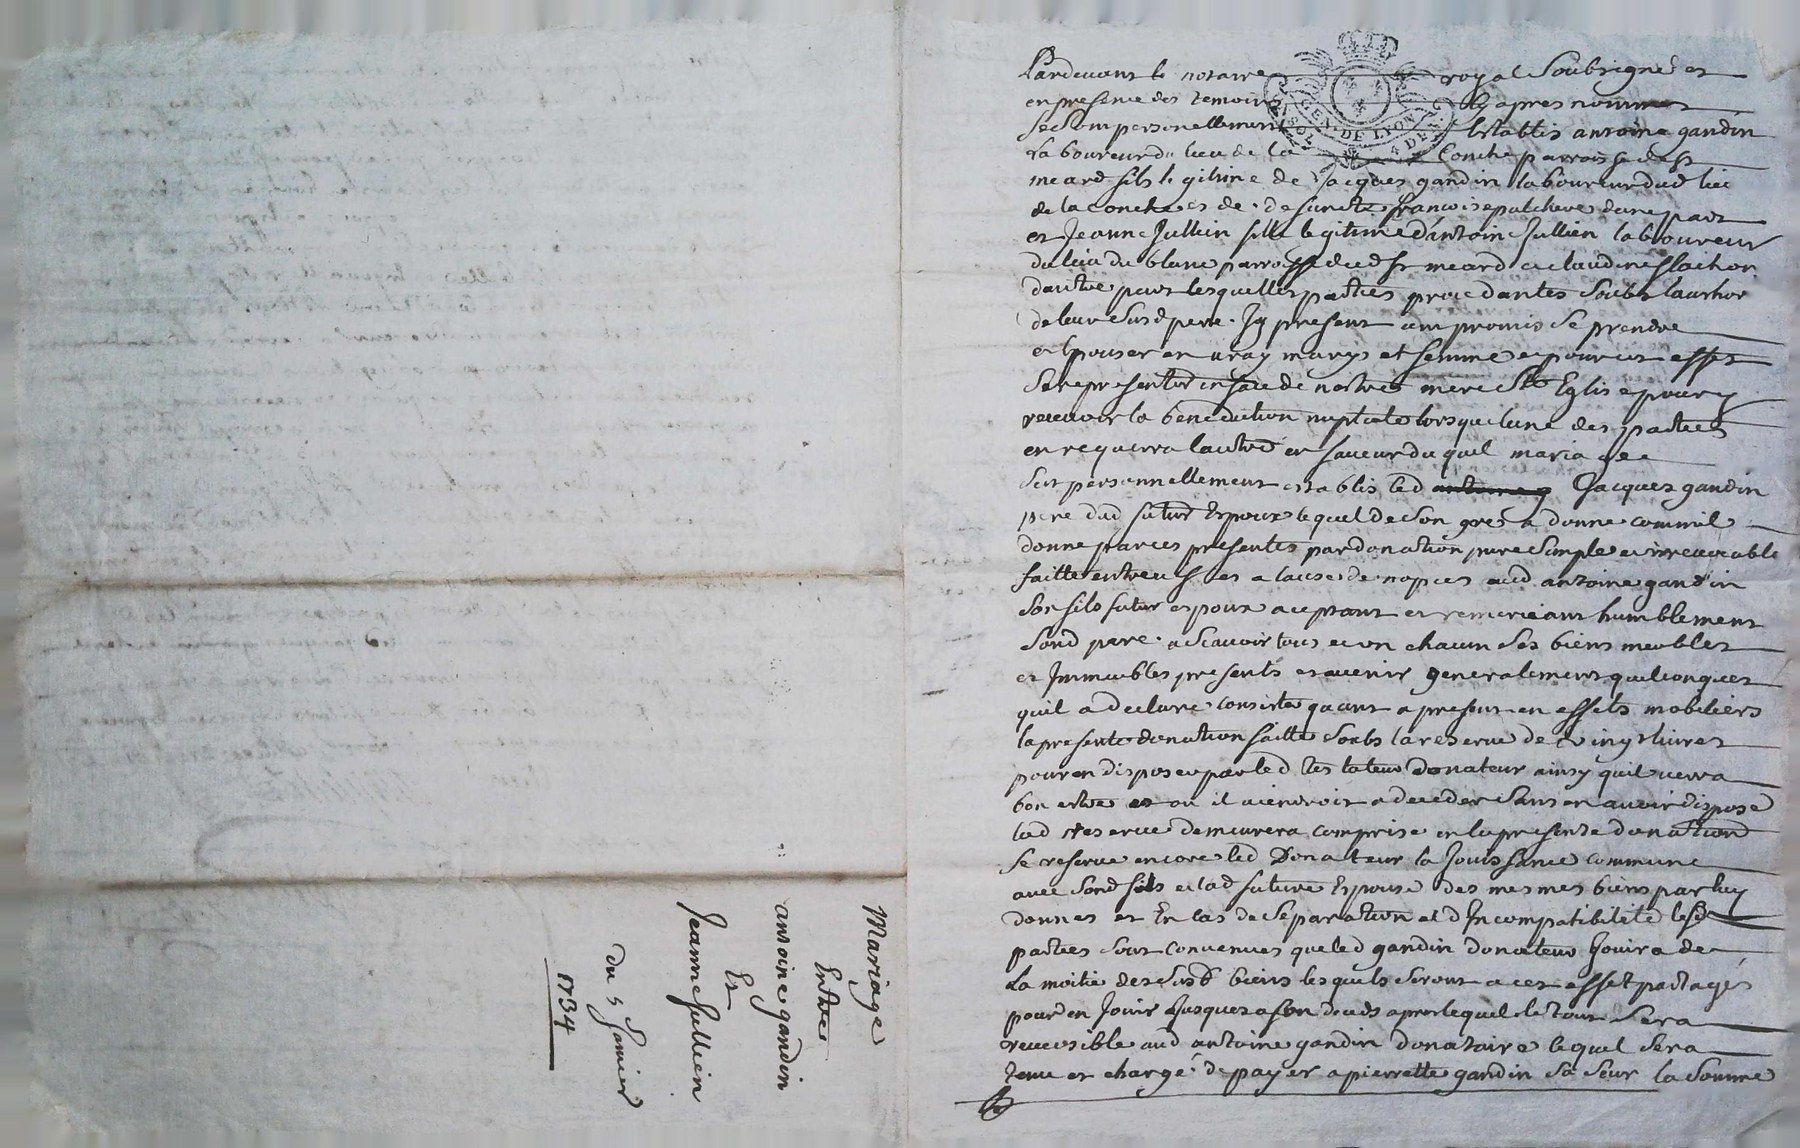 Mariage
Entre
antoine gandin
Et
Jeanne Jullien
du 5 Janvier
1734
GEN. DE LYON
Pardevant le notaire royal Soubsigné et
en presence des temoins cy apres nommes
Se Sont personellement Establis antoine gandin
Laboureur du lieu de la Conche parroisse de St
meard fils legitime de Jacques gandin laboureur dud lieu
de la Conche et de defuncte francoise pulchere dune part
et Jeanne Jullien fille legitime d'antoine Jullien laboureur
du lieu du blanc parroisse dud St meard et claudine flachon
dautre part lesquelles parties procedantes Soubz lauthor
de leur Susd pere Jcy present ont promis Se prendre
et Epouser en vray marys et femme et pour cet effet
Se representer en face de nostre mere Ste Eglise pour y
recevoir la benediction nuptiale lorsque lune des parties
en requerra lautre en faveur du quel mariage
Sest personnellement establis led antoine g Jacques gandin
pere dud futur Espoux lequel de Son gres a donne comme il
donne par ces presentes par donation pure Simple et irrevocable
faitte entre vifs et a cause de nopces aud antoine gandin
Son fils futur espoux aceptant et remerciant humblement
Sond pere a Scavoir tous et un chacun Ses biens meubles
et Jmmeubles presents et avenir generalement quelconques
quil a declare consister quant a present en effets mobiliers
la presente donation faitte Soubs la reserve de vingt livres
pour en disposer par led donateur ainsy quil verra
bon estre et ou il viendroit a deceder Sans en avoir dispose
lad reserve demeurera comprise en la presente donation
Se reserve encore led Donateur la Jouissance commune
avec Sond fils et lad future Espouse des mesmes biens par luy
donnes et En cas de Separation et d'Incompatibilite lesd
parties Sont convenues que led gandin donateur Jouira de
La moitie des Susd biens lesquels Seront a cet effet partagés
pour en Jouir Jusques a Son deceds apres lequel le tout Sera
reversible aud antoine gandin donataire lequel Sera
tenu et chargé de payer a pierrette gandin Sa Seur la Somme